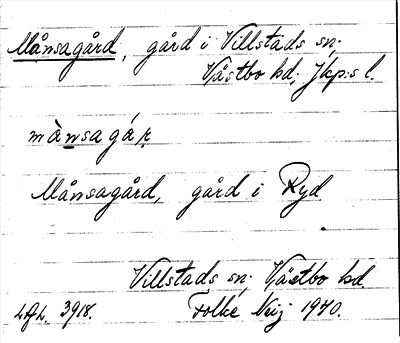 Månsagård, gård i Villstads sn;
Västbo hd; Jkp:s l.
mànsagár
Månsagård, gård i Ryd
Villstads sn; Västbo hd.
L.A.L. 3918. Folke Neij 1940.